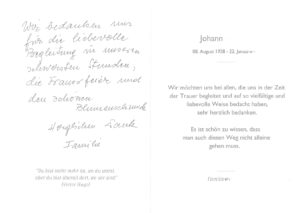 Wir bedanken uns
für die liebevolle
Begleitung in unseren
schwersten Stunden,
die Trauerfeier und
den schönen
Blumenschmuck
Herzlichen Dank
Familie
"Du bist nicht mehr da, wo du warst,
aber du bist überall dort, wo wir sind."
Victor Hugo
Johann
08. August 1938 - 22. Januar
Wir möchten uns bei allen, die uns in der Zeit
der Trauer begleitet und auf so vielfältige und
liebevolle Weise bedacht haben,
sehr herzlich bedanken.
Es ist schön zu wissen, dass
man auch diesen Weg nicht alleine
gehen muss.